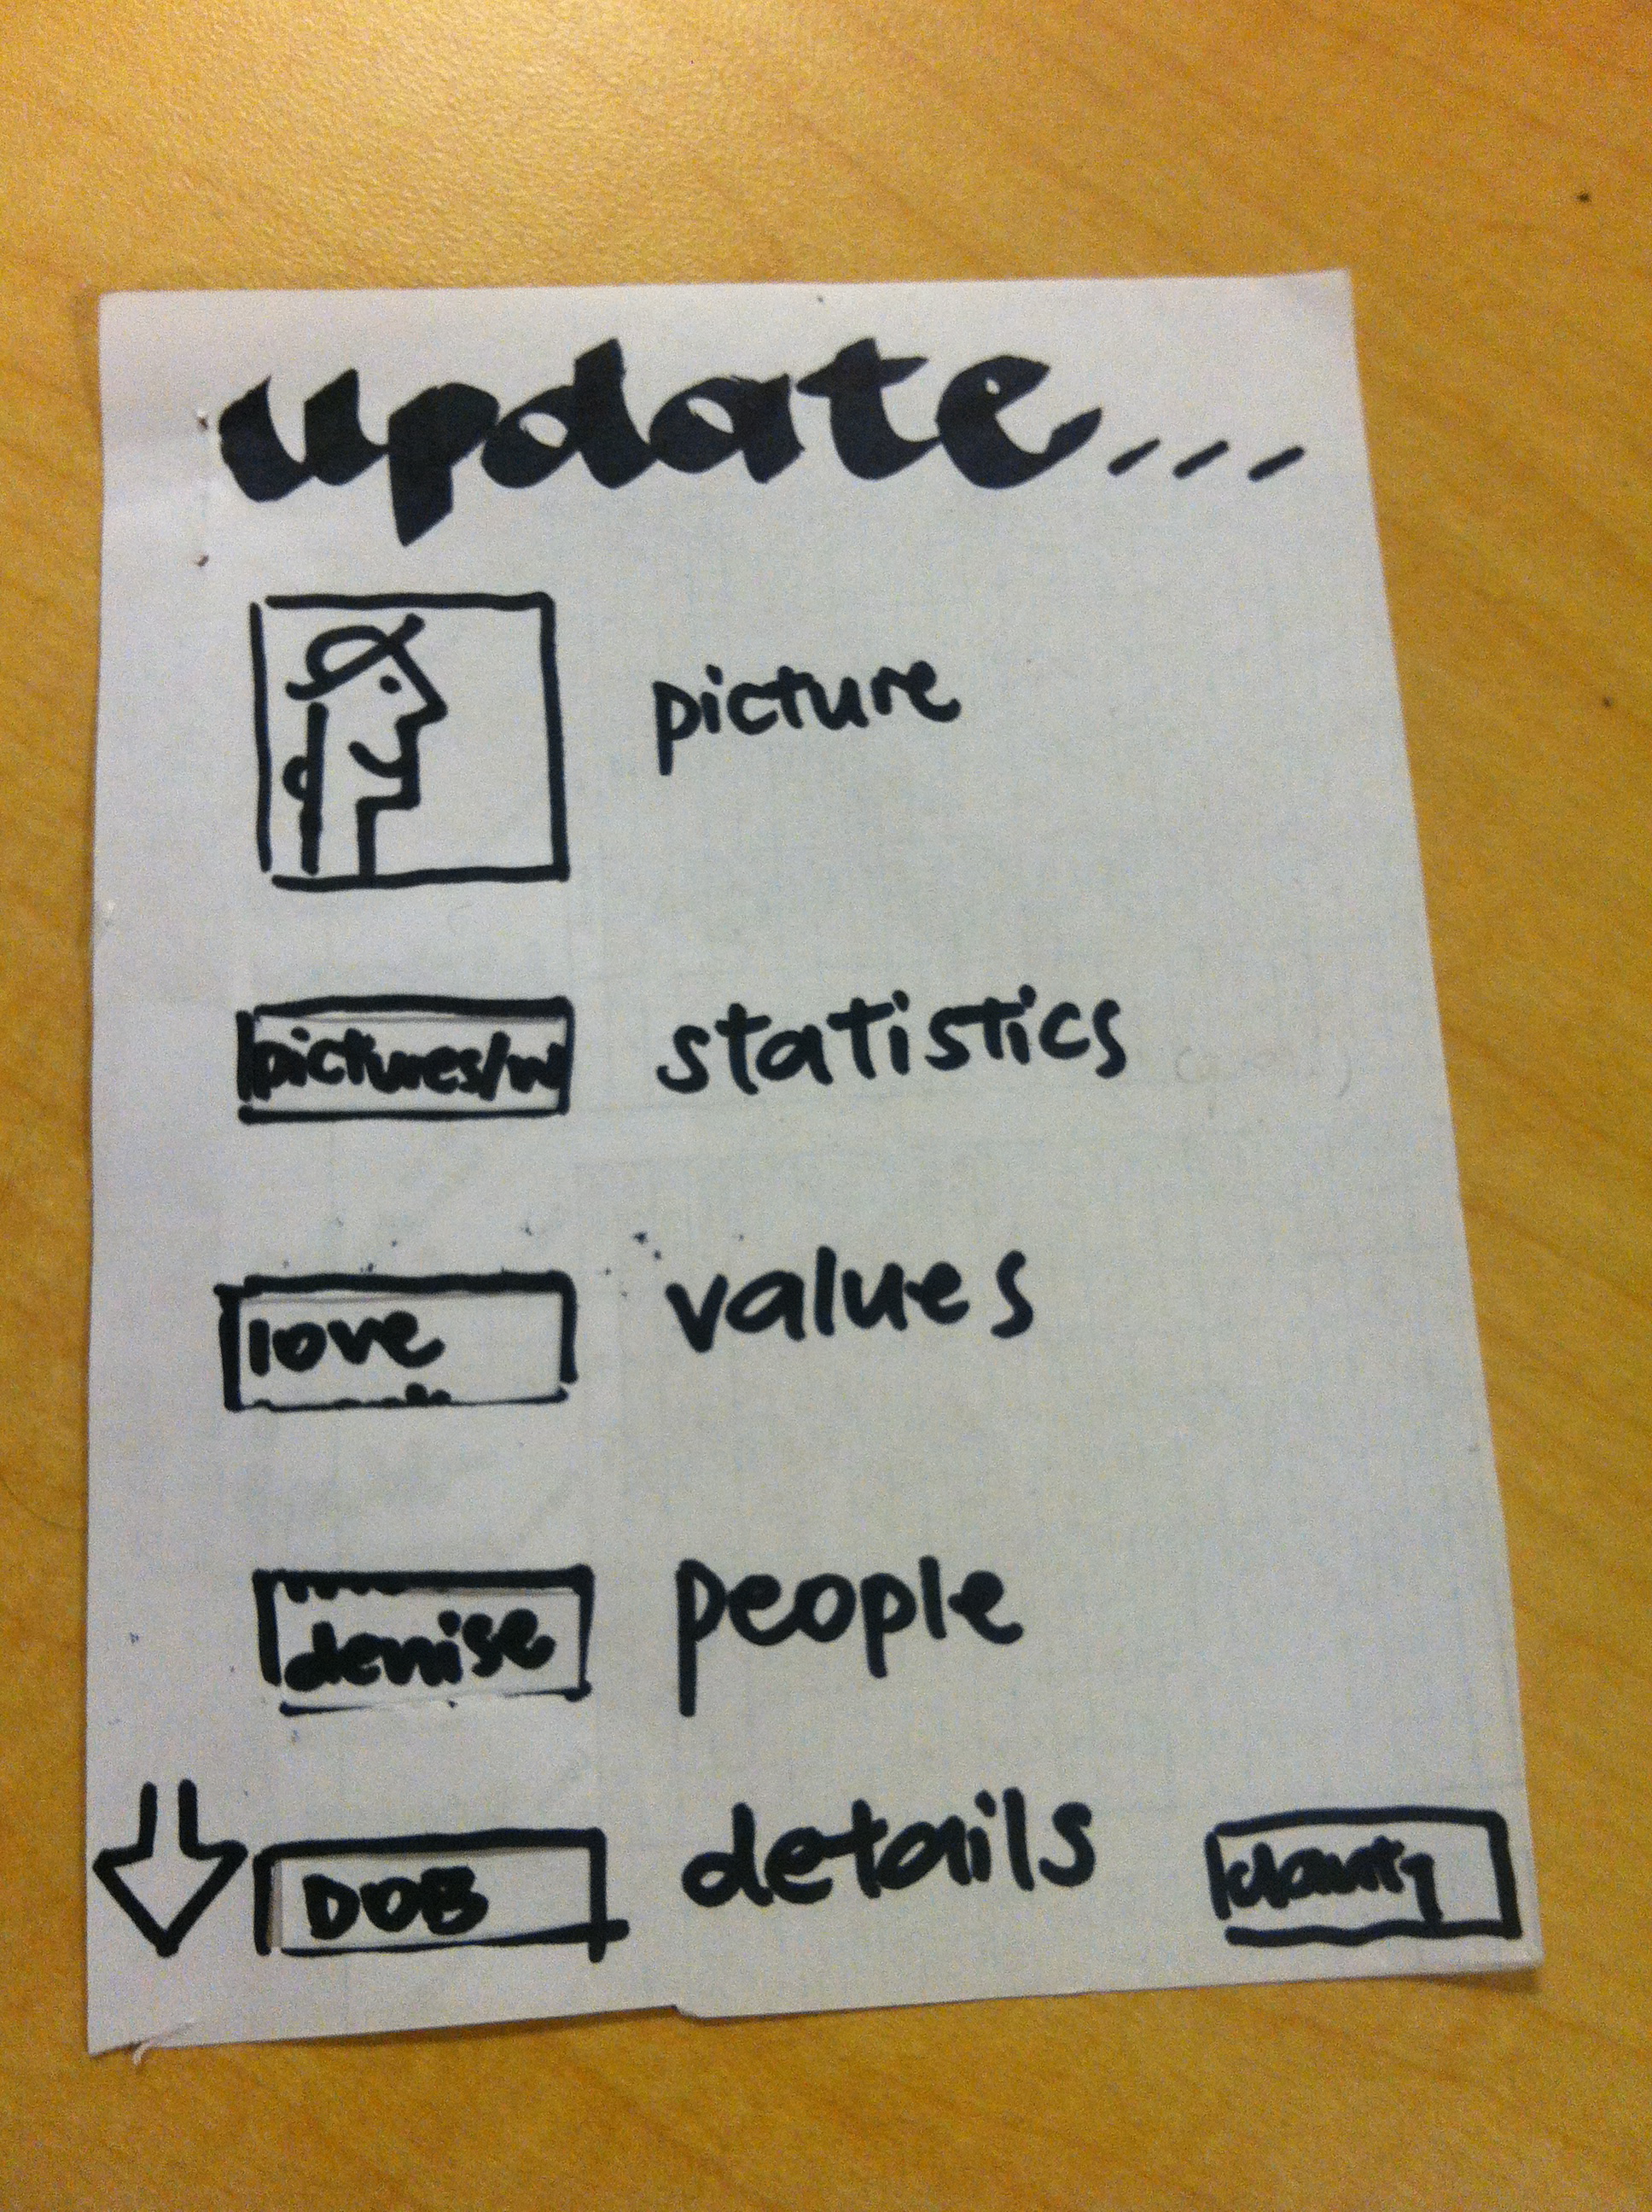 update...
picture
pictures/w statistics
love values
denise people
DOB details clarity